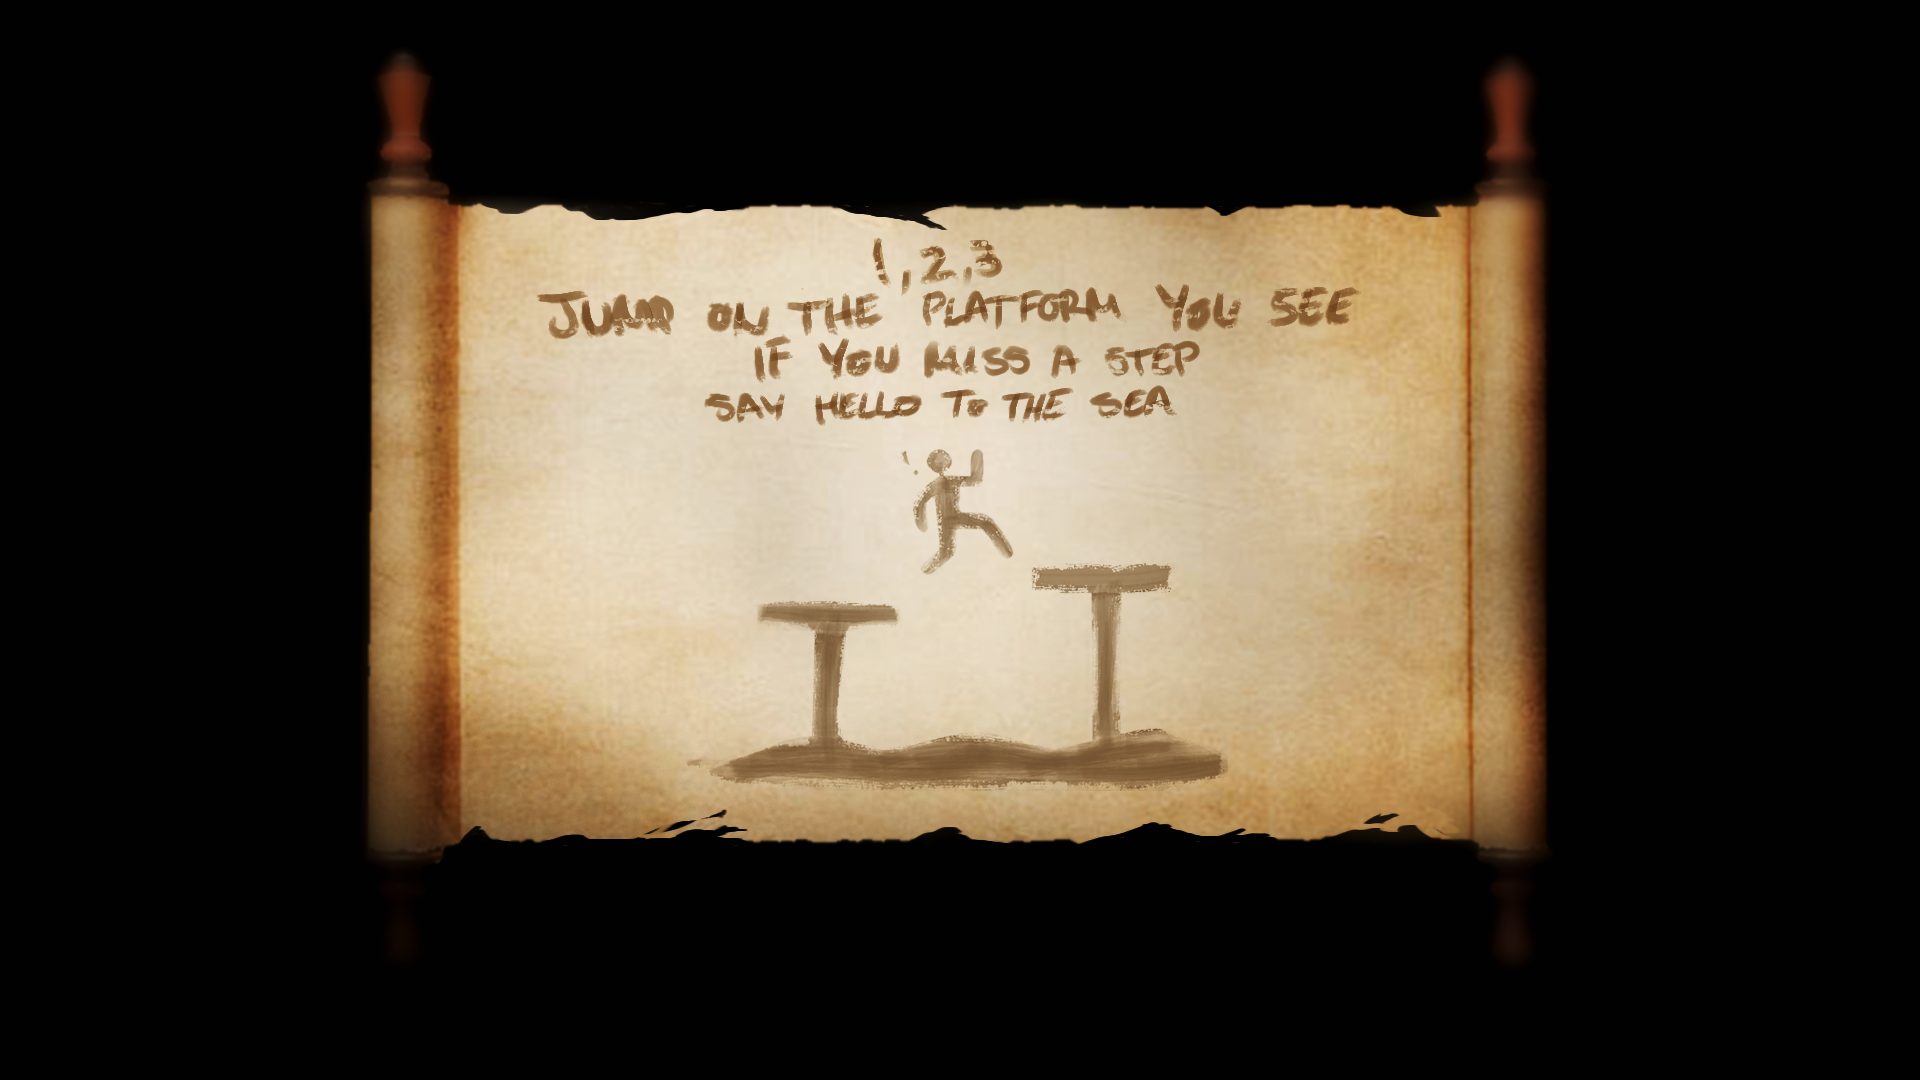 1,2,3
JUMP ON THE PLATFORM YOU SEE
IF YOU MISS A STEP
SAY HELLO TO THE SEA